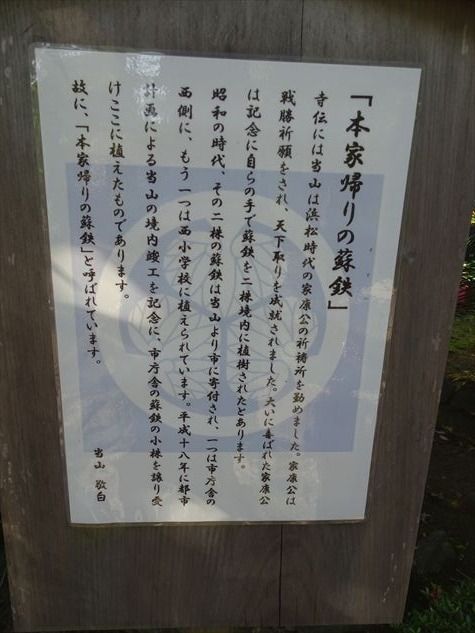 「本家帰りの蘇鉄」
寺伝には当山は浜松時代の家康公の祈祷所を勤めました。家康公は
戦勝祈願をされ、天下取りを成就されました。大いに喜ばれた家康公
は記念に自らの手で蘇鉄を二株境内に植樹されたとあります。
昭和の時代、その二株の蘇鉄は当山より市に寄付され、一つは市庁舎の
西側に、もう一つは西小学校に植えられています。平成十八年に都市
計画による当山の境内竣工を記念に、市庁舎の蘇鉄の小株を譲り受
けここに植えたものであります。
故に、「本家帰りの蘇鉄」と呼ばれています。
当山 敬白